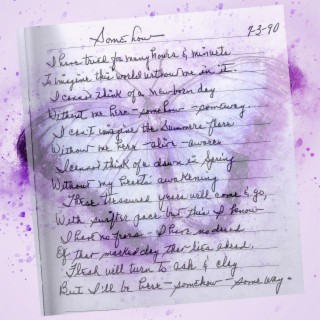 Somehow
9-3-90
I have tried for many hours & minutes
To imagine this world without me in it.
I cannot think of a newborn day
Without me here - somehow - someway.
I can't imagine the Summers flare
Without me here - alive - aware
I cannot think of a dawn in Spring
Without my heart's awakening
These treasured years will come & go,
With swifter pace but this I know
I have no fears - I have no dread
Of that marked day that lies ahead.
Flesh will turn to ash & clay
But I'll be here - somehow - some way.